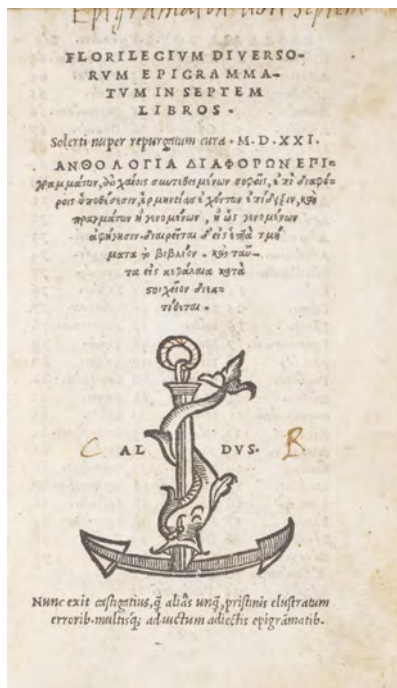 Epigrammaton libri septem
FLORILEGIVM DIVERSO-
RVM EPIGRAMMA-
TVM IN SEPTEM
LIBROS.
Solerti nuper repurgatum cura. M. D. XXI.
ΑΝΘΟΛΟΓΙΑ ΔΙΑΦΟΡΩΝ ΕΠΙ=
γραμμάτων, ἀρχαίοις συντεθειμένων σοφοῖς, ἐπὶ διαφό=
ροις ὑποθέσεσιν, ἑρμηνείας ἐχόντων ἐπίδειξιν, καὶ
πραγμάτων ἢ γενομένων, ἢ ὡς γενομένων
ἀφήγησιν. διαιρεῖται δ' εἰς ἑπτὰ τμή
ματα τὸ βιβλίον. καὶ ταῦ-
τα εἰς κεφάλαια κατὰ
στοιχεῖον διεκ-
τίθεται.
C AL DVS. B
Nunc exit castigatius, q̃ aliàs unq̃, pristinis elustratum
errorib. multisq; adauctum adiectis epigrãmatib.